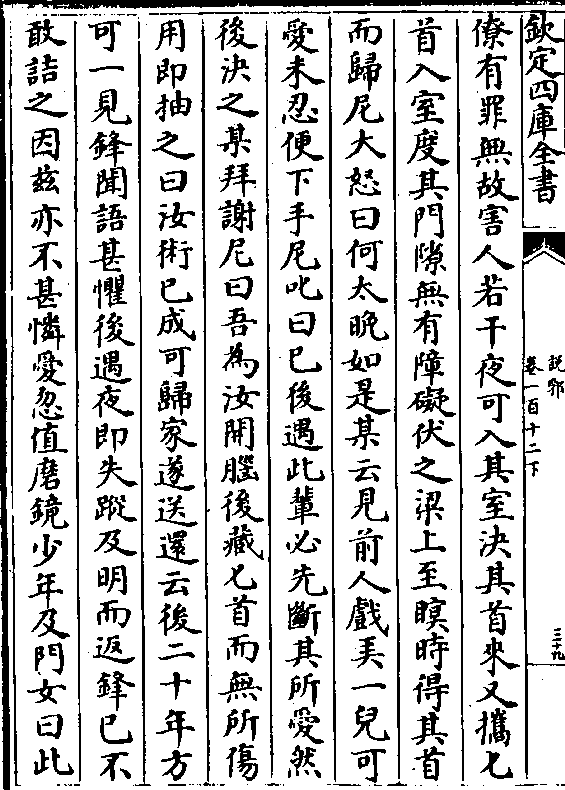 欽定四庫全書
說郛
卷一百十二下
三十九
僚有罪無故害人若干夜可入其室決其首來又攜匕
首入室度其門隙無有障礙伏之梁上至瞑時得其首
而歸尼大怒曰何太晚如是某云見前人戲美一兒可
愛未忍便下手尼叱曰已後遇此輩必先斷其所愛然
後決之某拜謝尼曰吾為汝開腦後藏匕首而無所傷
用即抽之曰汝術已成可歸家遂送還云後二十年方
可一見鋒聞語甚懼後遇夜即失蹤及明而返鋒已不
敢詰之因茲亦不甚憐愛忽值磨鏡少年及門女曰此